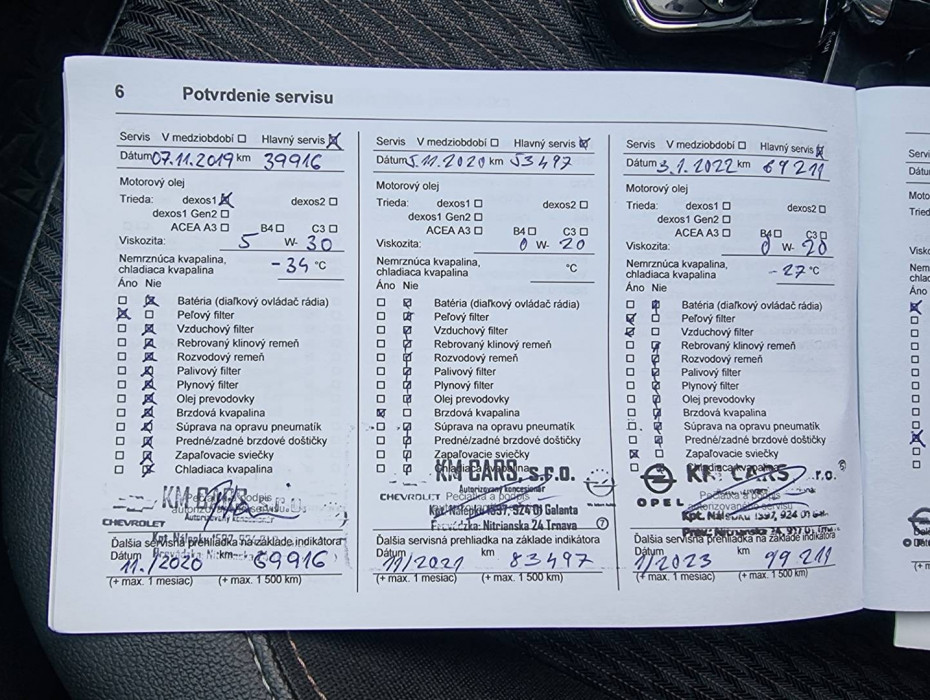 6 Potvrdenie servisu
Servis V medziobdobí Hlavný servis
Dátum 07.11.2019 km 39916
Motorový olej
Trieda: dexos1 dexos2
dexos1 Gen2
ACEA A3 B4 C3
Viskozita: 5 W- 30
Nemrznúca kvapalina,
chladiaca kvapalina -34 °C
Áno Nie
Batéria (diaľkový ovládač rádia)
Peľový filter
Vzduchový filter
Rebrovaný klinový remeň
Rozvodový remeň
Palivový filter
Plynový filter
Olej prevodovky
Brzdová kvapalina
Súprava na opravu pneumatík
Predné/zadné brzdové doštičky
Zapaľovacie sviečky
Chladiaca kvapalina
KM CARS
Pečiatka a podpis
CHEVROLET
Ďalšia servisná prehliadka na základe indikátora
Dátum 11./2020 km 69916
(+ max. 1 mesiac) (+ max. 1 500 km)
Servis V medziobdobí Hlavný servis
Dátum 5.11.2020 km 53497
Motorový olej
Trieda: dexos1 dexos2
dexos1 Gen2
ACEA A3 B4 C3
Viskozita: 0 W- 20
Nemrznúca kvapalina,
chladiaca kvapalina °C
Áno Nie
Batéria (diaľkový ovládač rádia)
Peľový filter
Vzduchový filter
Rebrovaný klinový remeň
Rozvodový remeň
Palivový filter
Plynový filter
Olej prevodovky
Brzdová kvapalina
Súprava na opravu pneumatík
Predné/zadné brzdové doštičky
Zapaľovacie sviečky
Chladiaca kvapalina
KM CARS, s.r.o.
Autorizovaný koncesionár
CHEVROLET Pečiatka a podpis
Kpt. Nálepku 1597, 924 01 Galanta
Prevádzka: Nitrianska 24 Trnava
Ďalšia servisná prehliadka na základe indikátora
Dátum 11/2021 km 83497
(+ max. 1 mesiac) (+ max. 1 500 km)
Servis V medziobdobí Hlavný servis
Dátum 3.1.2022 km 69211
Motorový olej
Trieda: dexos1 dexos2
dexos1 Gen2
ACEA A3 B4 C3
Viskozita: 0 W- 20
Nemrznúca kvapalina,
chladiaca kvapalina -27 °C
Áno Nie
Batéria (diaľkový ovládač rádia)
Peľový filter
Vzduchový filter
Rebrovaný klinový remeň
Rozvodový remeň
Palivový filter
Plynový filter
Olej prevodovky
Brzdová kvapalina
Súprava na opravu pneumatík
Predné/zadné brzdové doštičky
Zapaľovacie sviečky
Chladiaca kvapalina
CARS r.o.
OPEL Pečiatka a podpis
autorizovaného servisu
Ďalšia servisná prehliadka na základe indikátora
Dátum 1/2023 km 99211
(+ max. 1 mesiac) (+ max. 1 500 km)